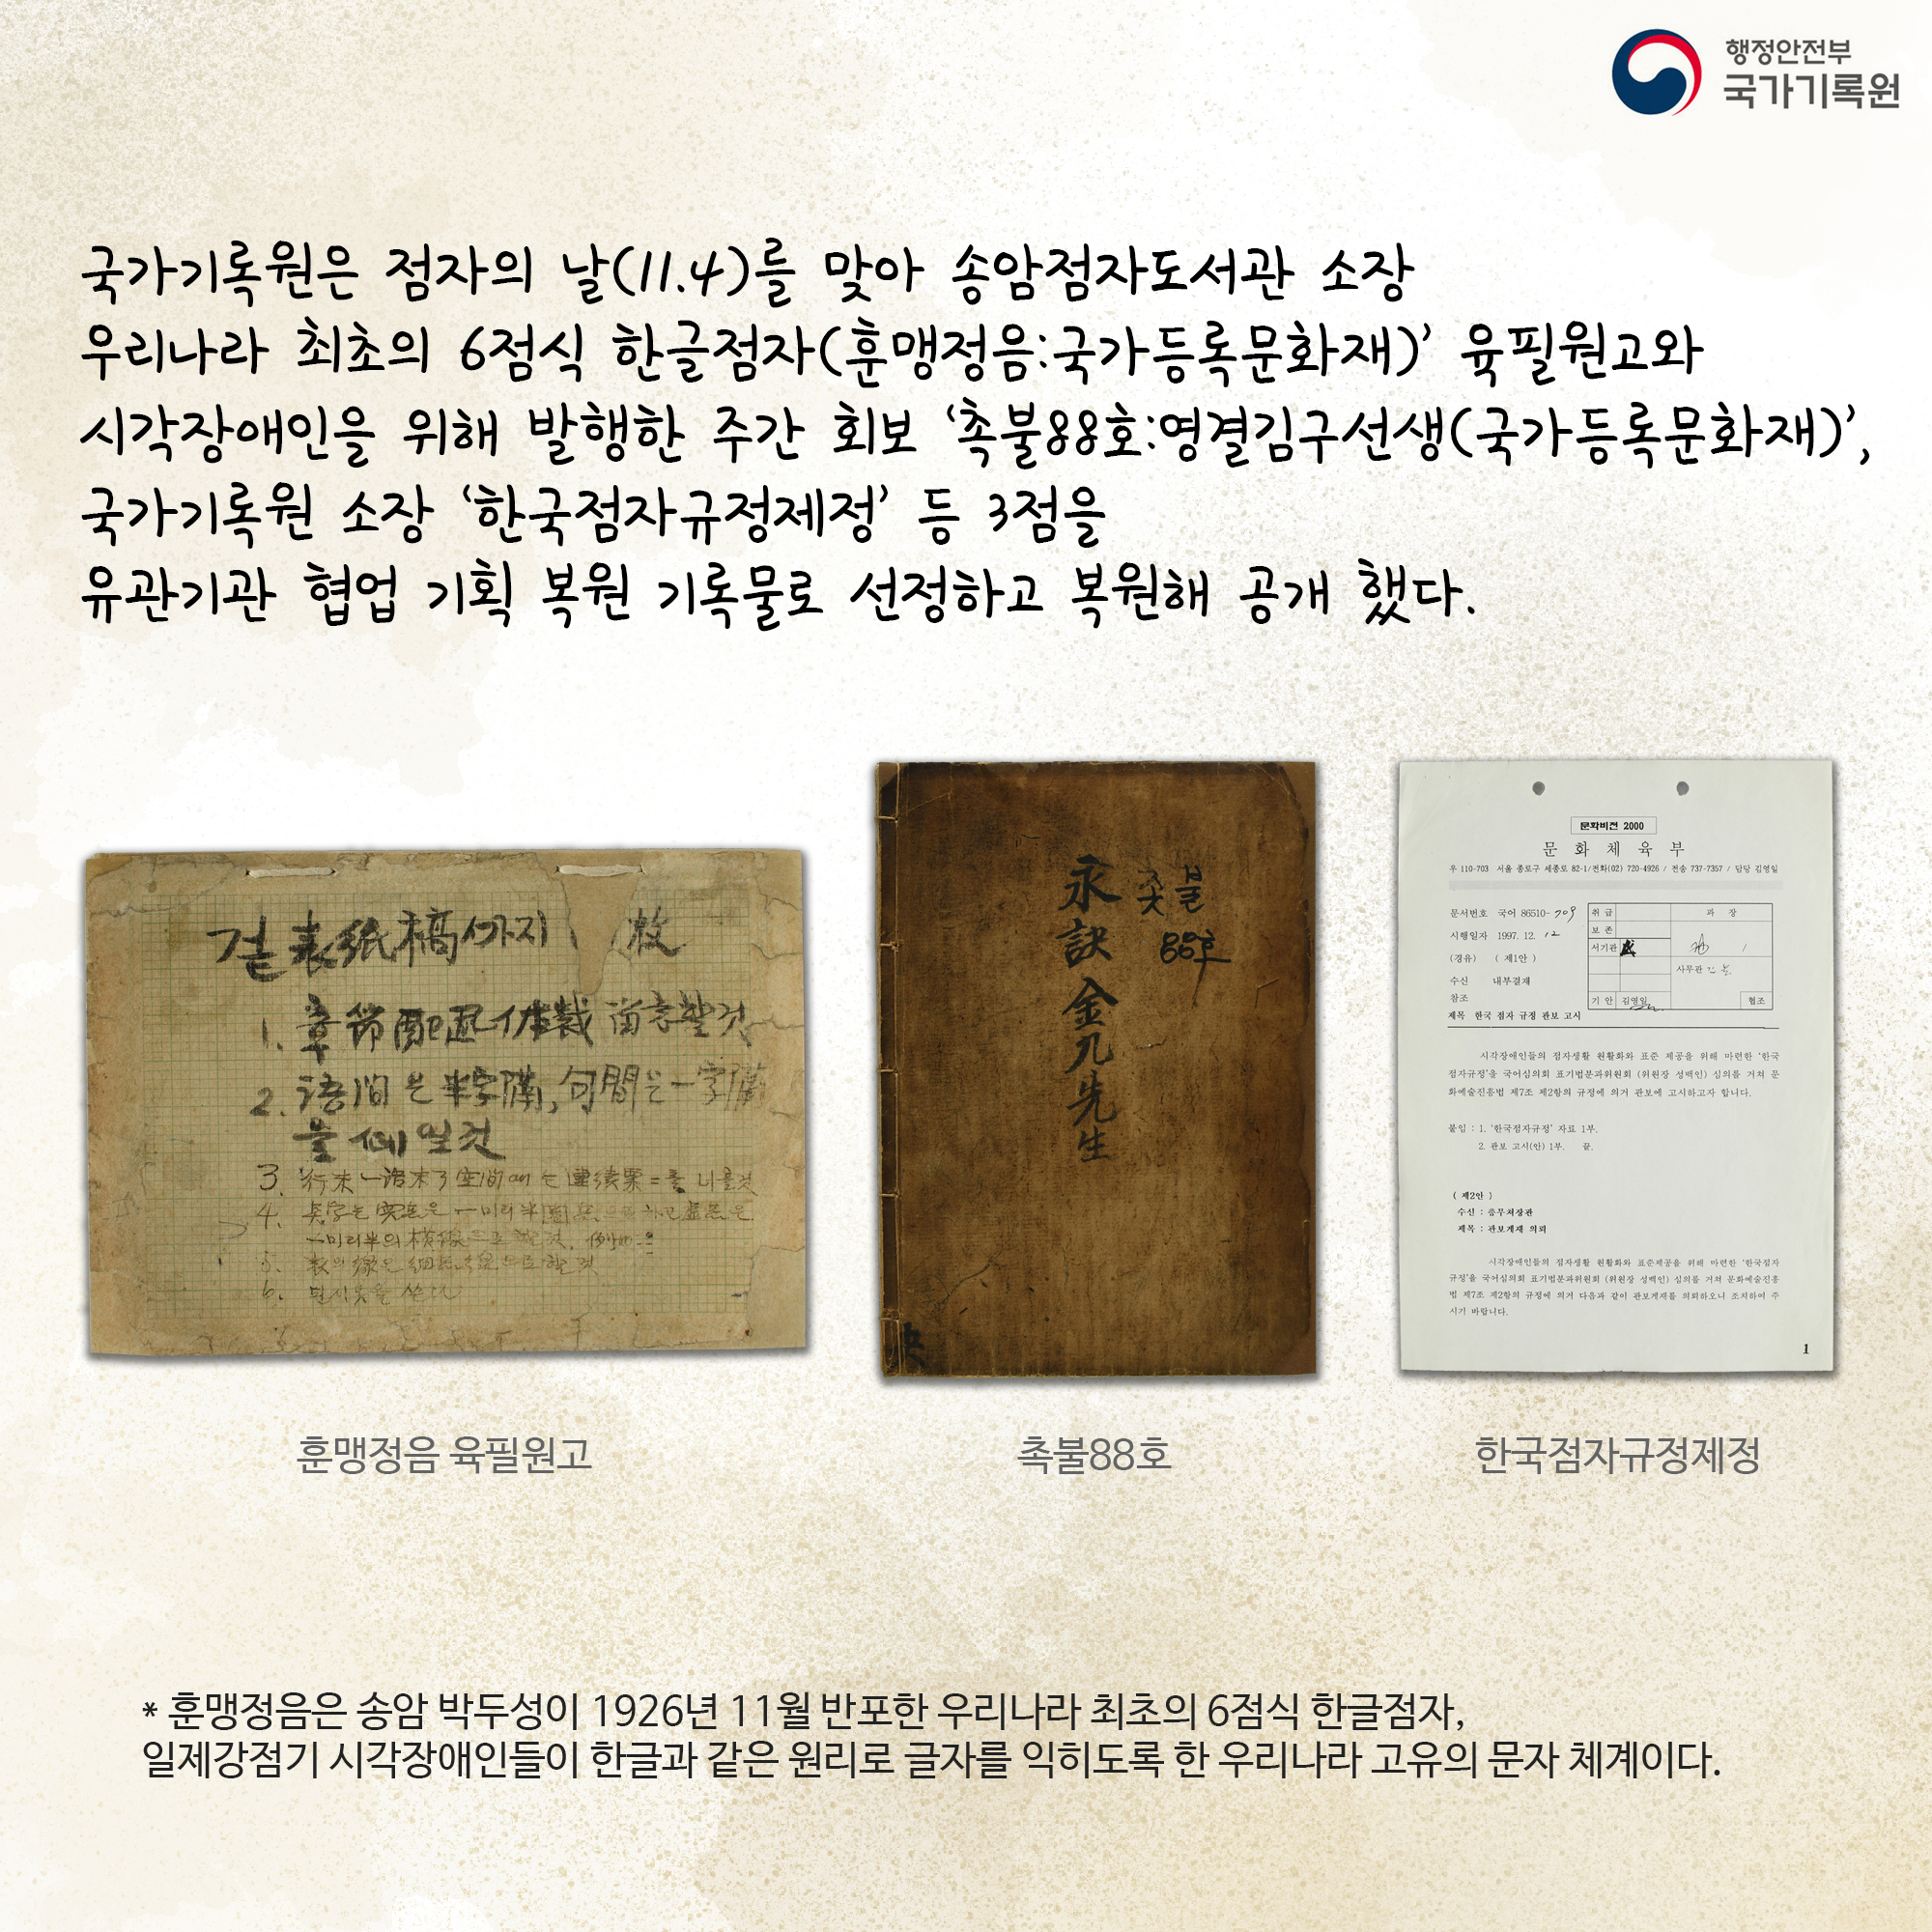 행정안전부
국가기록원
국가기록원은 점자의 날(11.4)를 맞아 송암점자도서관 소장
우리나라 최초의 6점식 한글점자(훈맹정음:국가등록문화재)’ 육필원고와
시각장애인을 위해 발행한 주간 회보 ‘촉불88호:영결김구선생(국가등록문화재)’,
국가기록원 소장 ‘한국점자규정제정’ 등 3점을
유관기관 협업 기획 복원 기록물로 선정하고 복원해 공개 했다.
겉表紙稿까지 枚
1. 章節配
2. 語間은 半字隔, 句間은 一字隔
을 例일것
3.
4.
5.
6.
훈맹정음 육필원고
촛불
88호
永訣金九先生
촉불88호
문화비전 2000
문 화 체 육 부
우 110-703 서울 종로구 세종로 82-1/전화(02) 720-4926 / 전송 737-7357 / 담당 김영일
문서번호 국어 86510-709
시행일자 1997. 12. 12
(경유) ( 제1안 )
수신 내부결재
참조
취 급
보 존
서기관
기 안 김영일
과 장
사무관
협조
제목 한국 점자 규정 관보 고시
시각장애인들의 점자생활 원활화와 표준 제공을 위해 마련한 ‘한국
점자규정’을 국어심의회 표기법분과위원회 (위원장 성백인) 심의를 거쳐 문
화예술진흥법 제7조 제2항의 규정에 의거 관보에 고시하고자 합니다.
붙임 : 1. ‘한국점자규정’ 자료 1부.
2. 관보 고시(안) 1부. 끝.
( 제2안 )
수신 : 총무처장관
제목 : 관보게재 의뢰
시각장애인들의 점자생활 원활화와 표준제공을 위해 마련한 ‘한국점자
규정’을 국어심의회 표기법분과위원회 (위원장 성백인) 심의를 거쳐 문화예술진흥
법 제7조 제2항의 규정에 의거 다음과 같이 관보게재를 의뢰하오니 조치하여 주
시기 바랍니다.
1
한국점자규정제정
* 훈맹정음은 송암 박두성이 1926년 11월 반포한 우리나라 최초의 6점식 한글점자,
일제강점기 시각장애인들이 한글과 같은 원리로 글자를 익히도록 한 우리나라 고유의 문자 체계이다.